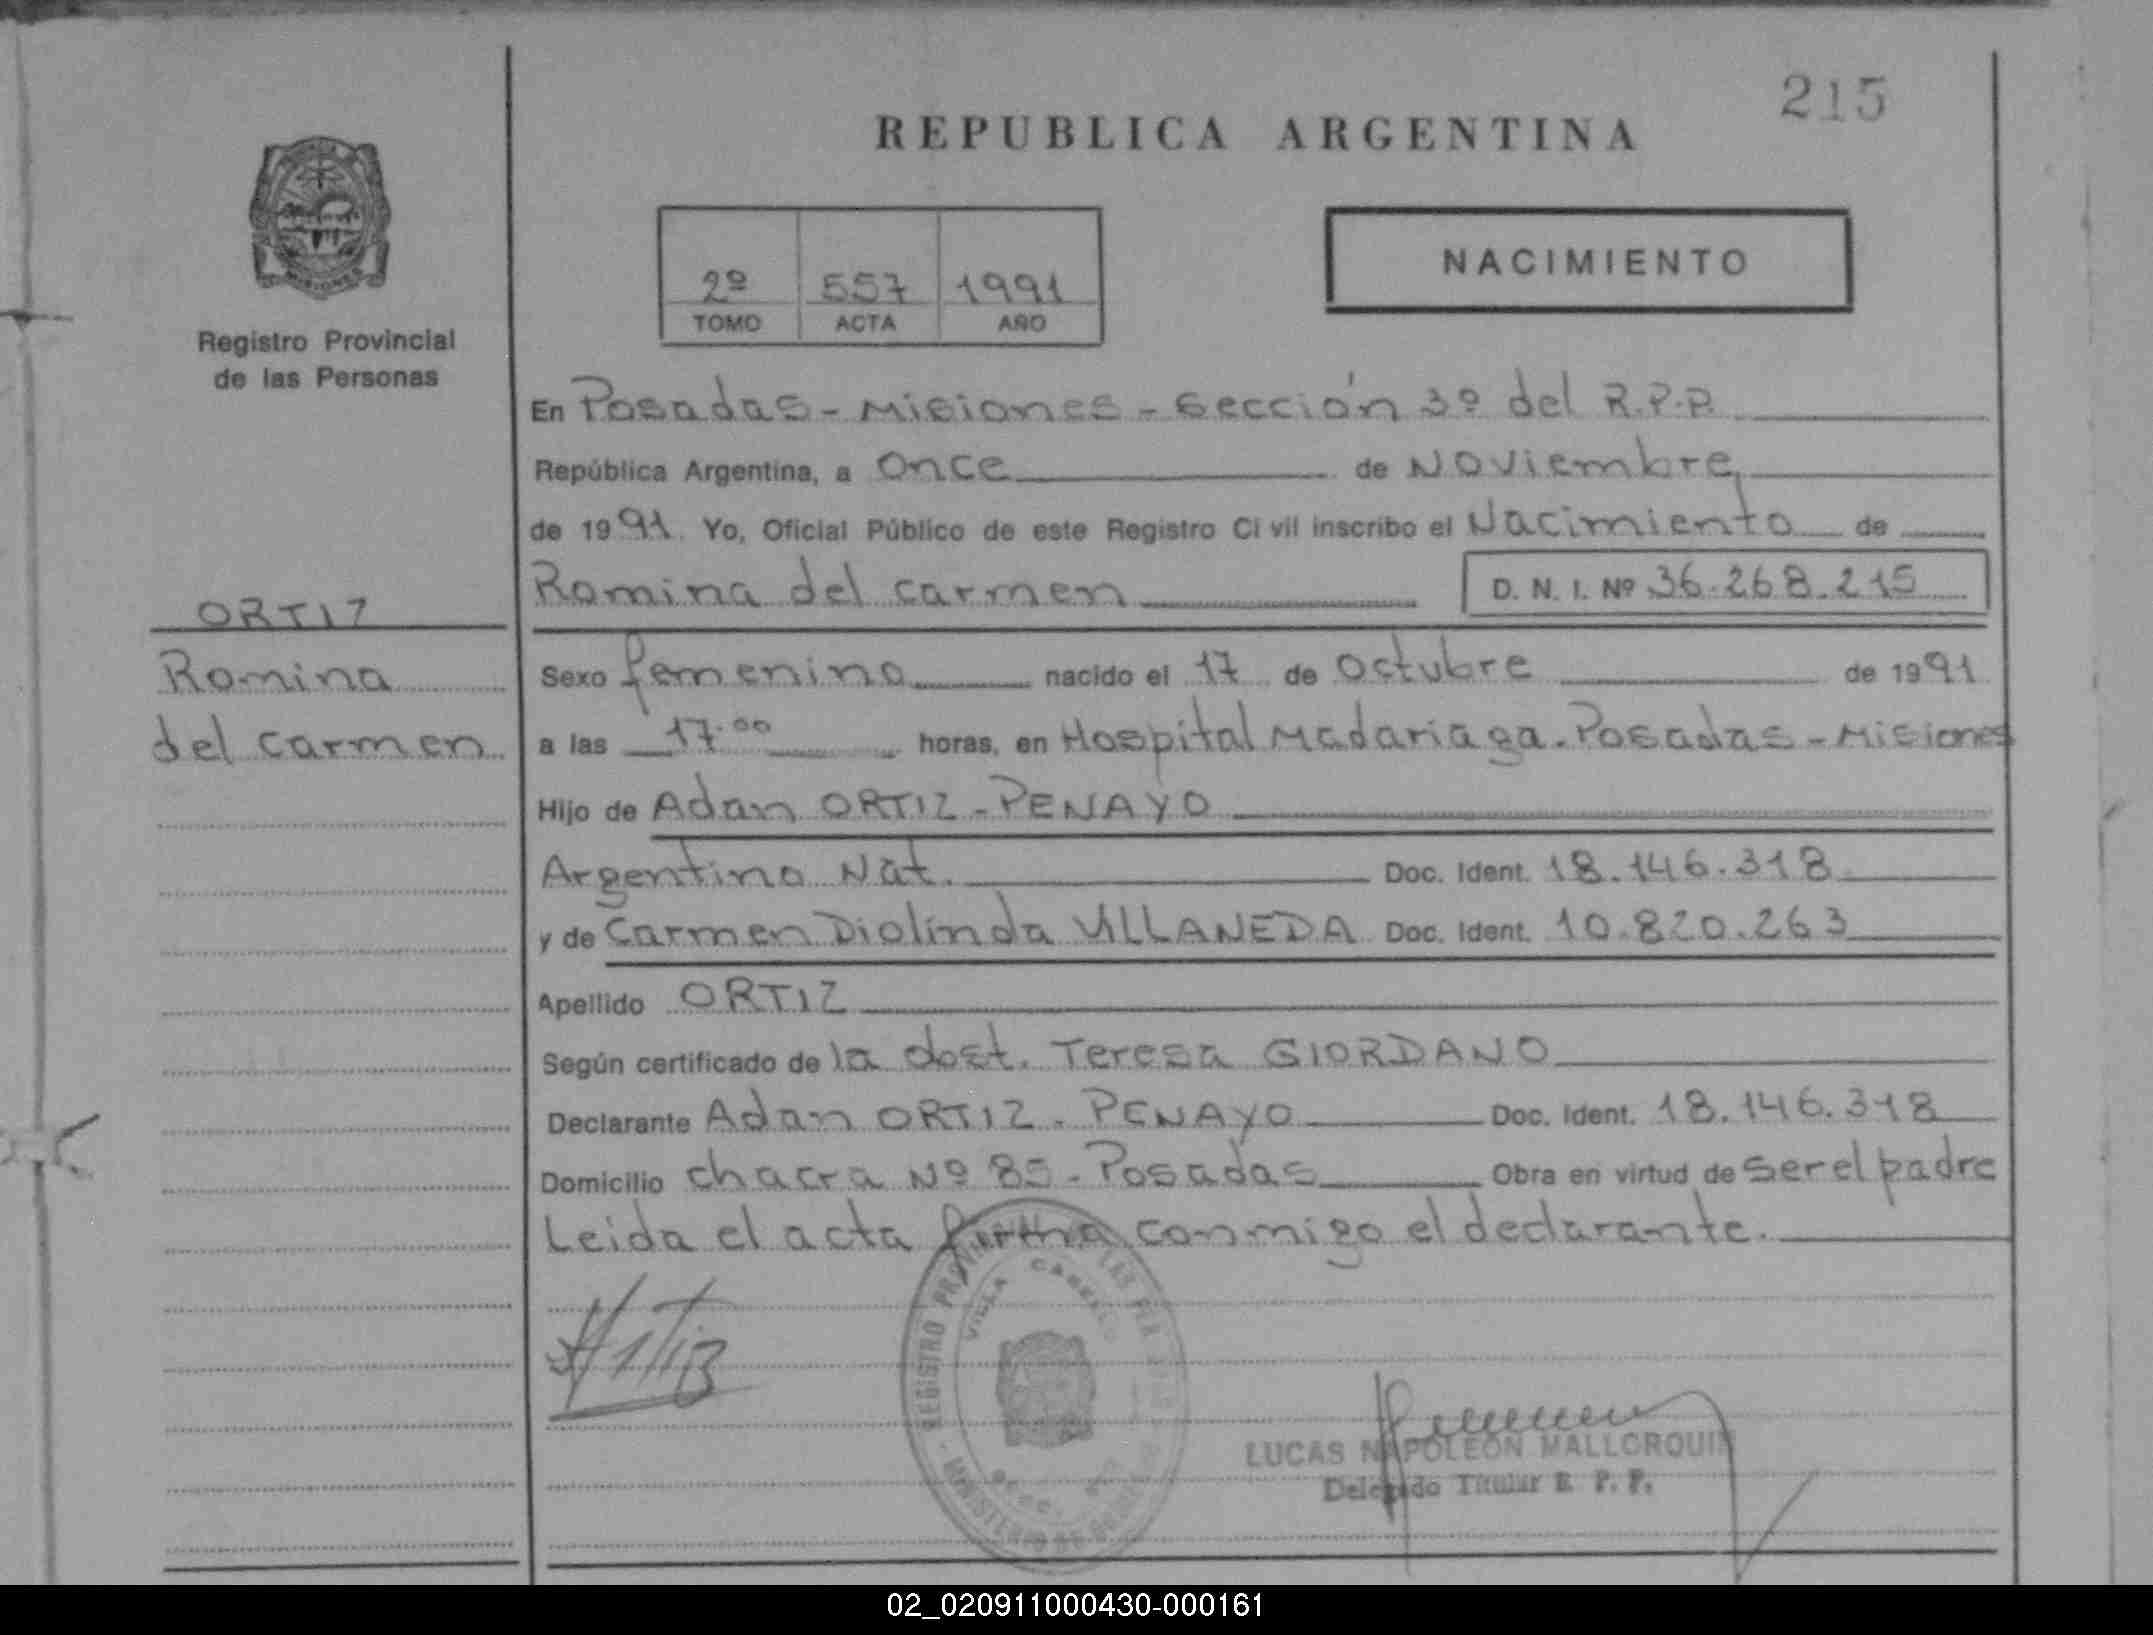 215
REPUBLICA ARGENTINA
MISIONES
Registro Provincial
de las Personas
2º 557 1991
TOMO ACTA AÑO
NACIMIENTO
En Posadas - Misiones - Sección 3º del R.P.P.
República Argentina, a Once de Noviembre
de 1991 Yo, Oficial Público de este Registro Civil inscribo el Nacimiento de
Romina del carmen D. N. I. Nº 36.268.215
ORTIZ
Romina
del carmen
Sexo femenino nacido el 17 de Octubre de 1991
a las 17.00 horas, en Hospital Madariaga. Posadas - Misiones
Hijo de Adan ORTIZ - PENAYO
Argentino Nat. Doc. Ident. 18.146.318
y de Carmen Diolinda VILLANEDA Doc. Ident. 10.820.263
Apellido ORTIZ
Según certificado de la obst. Teresa GIORDANO
Declarante Adan ORTIZ - PENAYO Doc. Ident. 18.146.318
Domicilio chacra Nº 85 - Posadas Obra en virtud de ser el padre
Leida el acta firma conmigo el declarante.
REGISTRO PROVINCIAL DE LAS PERSONAS
VILLA CABELLO
LUCAS NAPOLEON MALLORQUIN
Delegado Titular R. P. P.
02_020911000430-000161